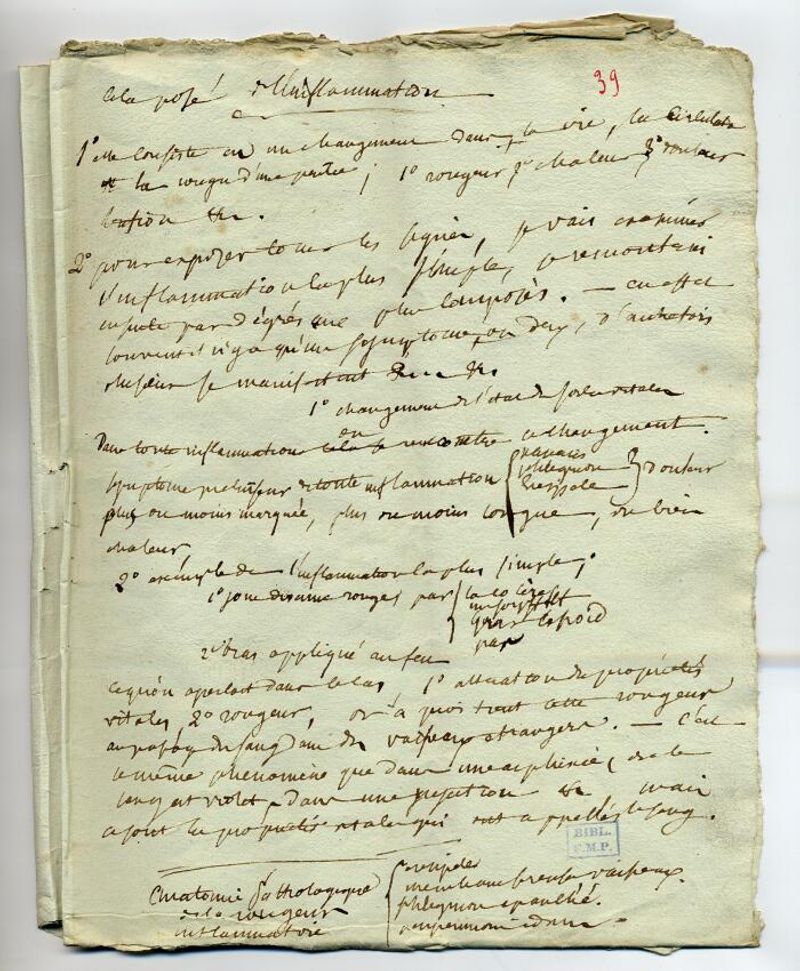 39
cela posé d l'inflammation
1° elle consiste en un changement dans la vie, la circulat
et la rougr d'une partie ; 1° rougeur 2° chaleur 3° douleur
tension &c.
2° pour exposer tous les signes, je vais examiner
l'inflammation la plus simple, je remontrai
ensuite par dégrés aux plus composés. — en effet
souvent il n'y a qu'un symptome, ou deux, d'autrefois
plusieurs se manifestent &c.
1° changement de l'état des forces vitales
en
Dans toute inflammation cela se rencontre ce changement.
symptome précurseur de toute inflammation { panaris
phlegmon
Eresipele } Douleur
plus ou moins marquée, plus ou moins longue, ou bien
chaleur,
2° exemple de l'inflammation la plus simple ;
1° joue devenue rouge par { la colère
le froid
par
2° bras appliqué au feu
ce qu'on apercoit dans le cas 1° altération des propriétés
vitales 2° rougeur, or à quoi tient cette rougeur
au passage du sang dans des vaisseaux etrangers. — c'est
le même phenomène que dans une asphixie, ou le
sang est violet, dans une injection &c mais
ce sont les propriétés vitales qui ont appellés le sang.
BIBL.
F.M.P.
Anatomie pathologique
de la rougeur
inflammatoire
{ eresipeles
membrane sereuse vaisseaux.
phlegmon epanché.